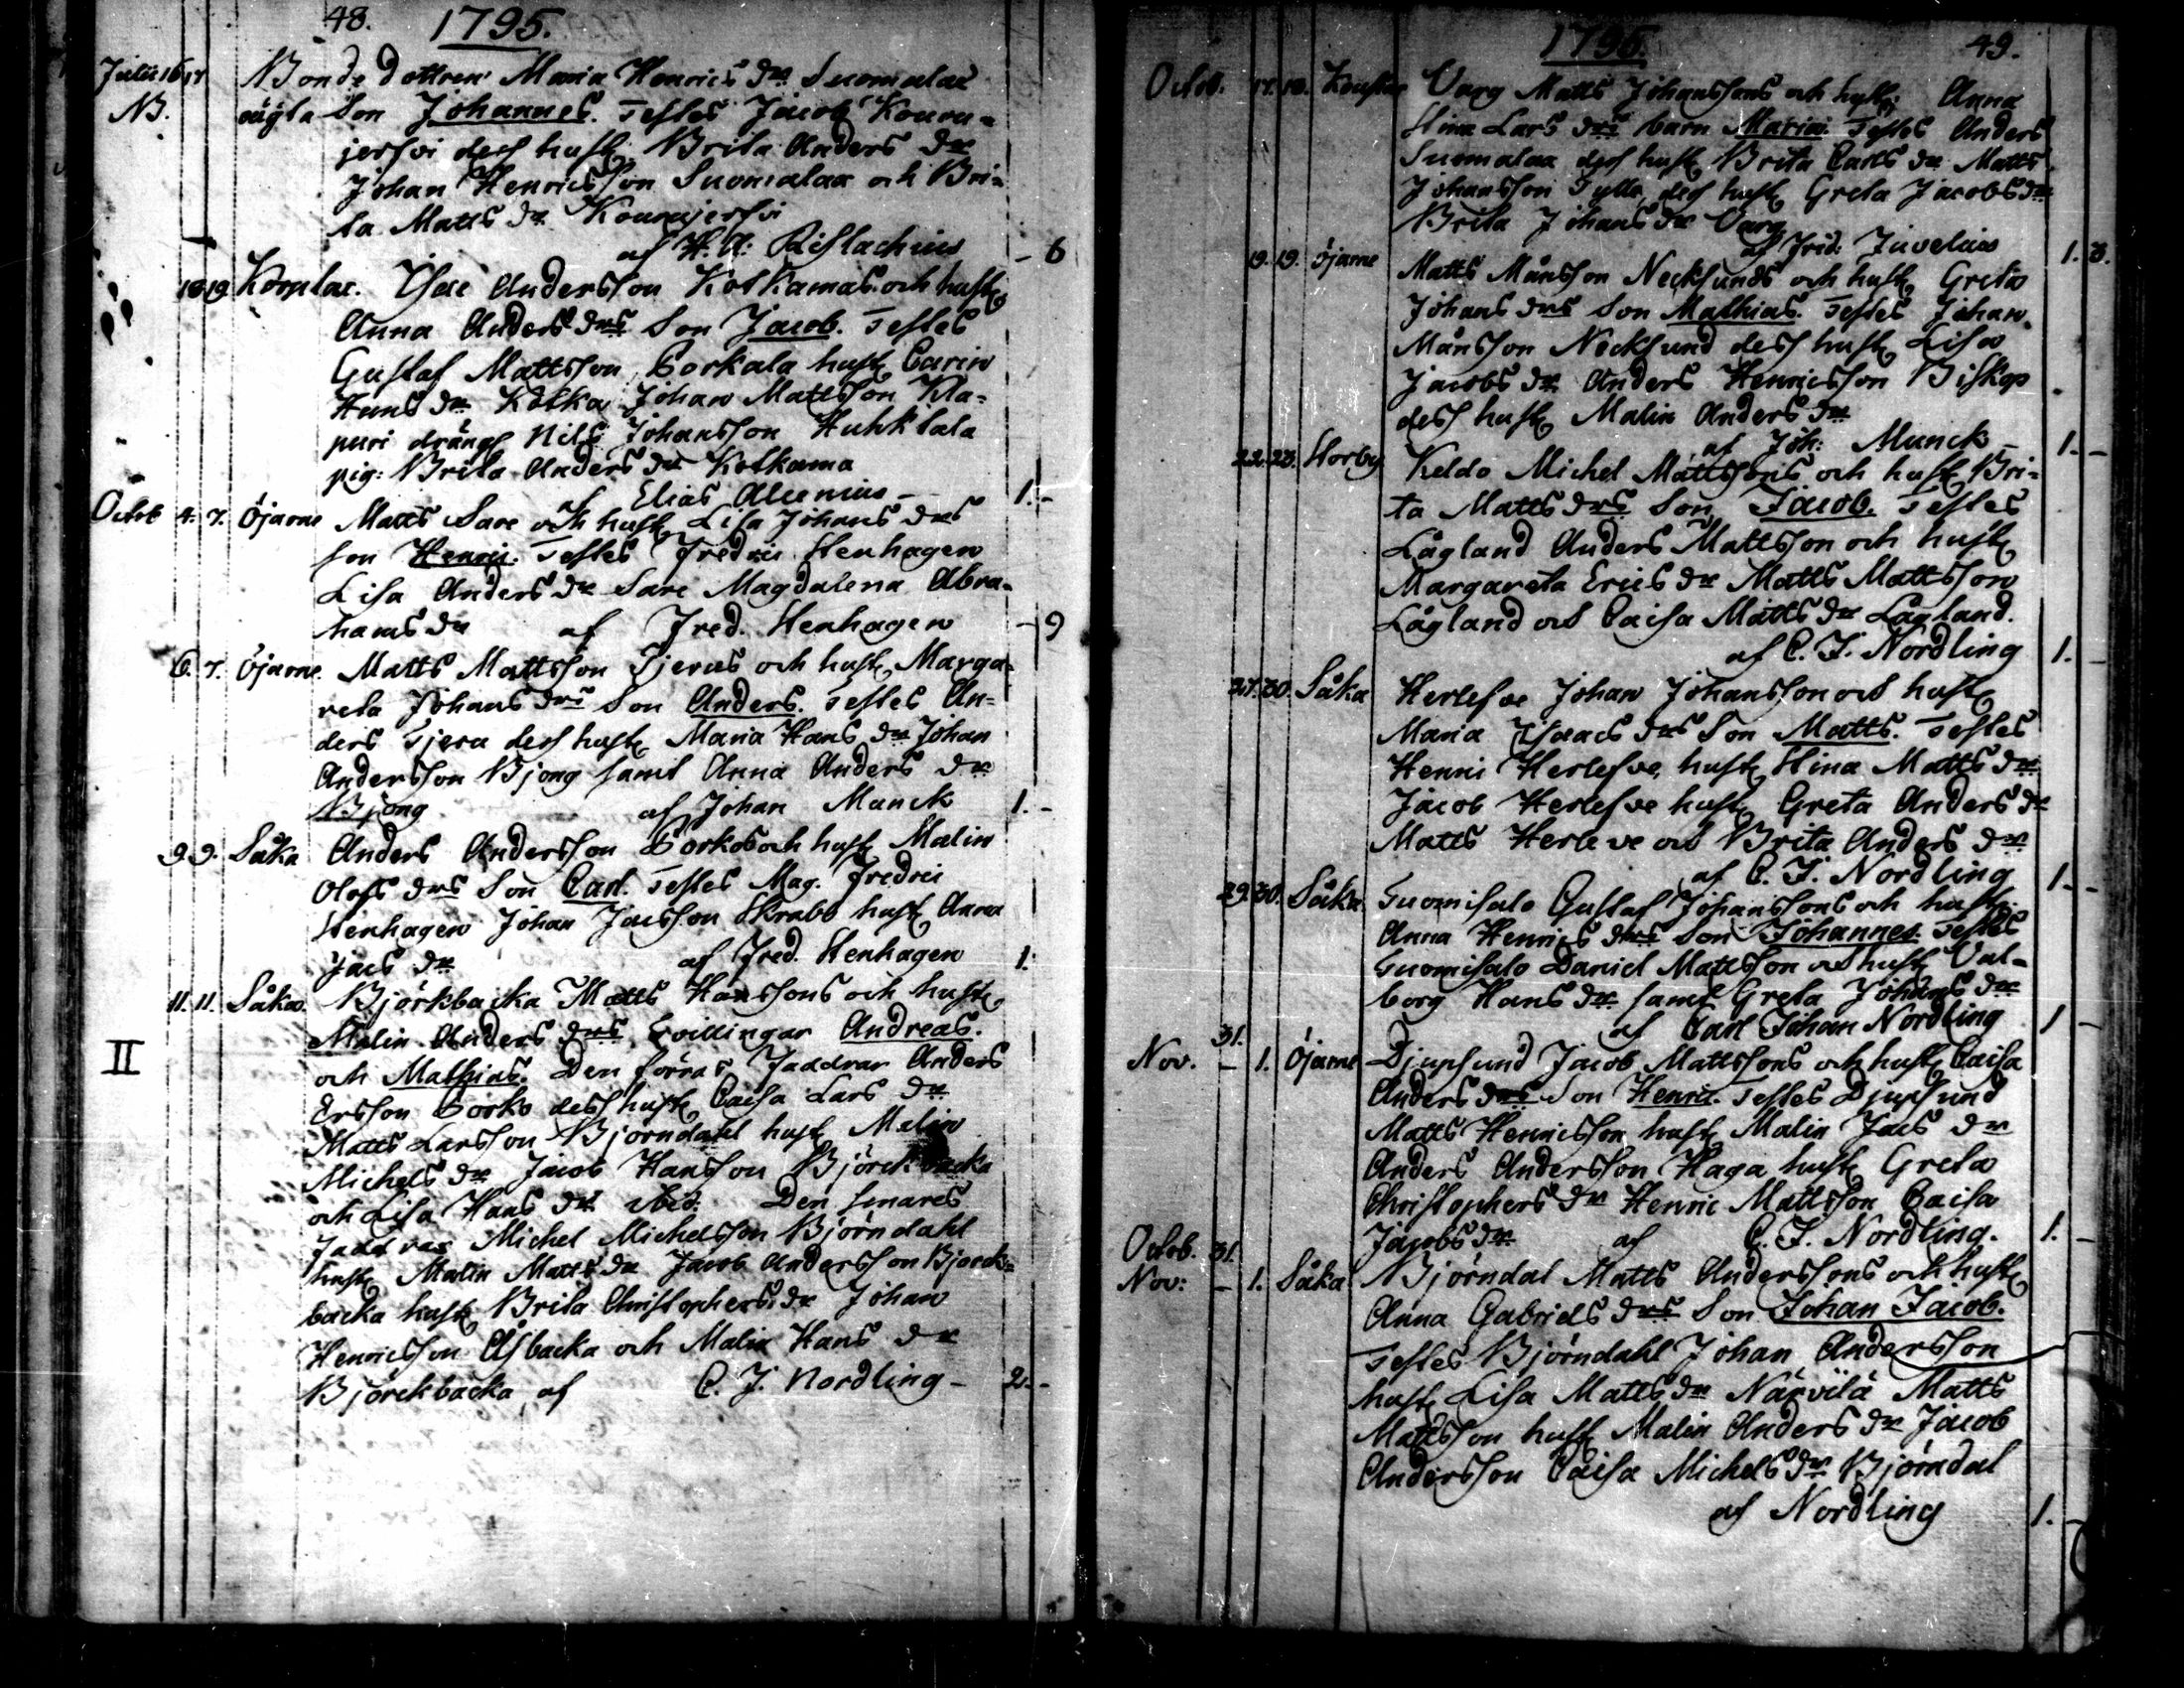 48. 1795.
Julii 16 17 Bonde dottren Maria Henrics dr Suomalas
NB. oägta Son Johannes. Testes Jacob Koura=
jerfvi dess hust Brita Anders dr
Johan Henricsson Suomalaa och Bri=
ta Matts dr Kourajerfvi
af H. A: Rislachius - 6
18 19 Korplax. Isac Andersson Kotkamas och hust
Anna Anders drs Son Jacob. Testes
Gustaf Mattsson Corkala hust Carin
Hans dr Kotka Johan Mattsson Kla=
puri drängs Nils Johansson Huhktala
pig: Brita Anders dr Kotkama
af Elias Alcenius - 1. -
Octob 4. 7. Öjarne Matts Sare och hust Lisa Johans drs
son Henric. Testes Fredric Stenhagen
Lisa Anders dr Sare Magdalena Abra=
hams dr af Fred. Stenhagen - 9
6. 7. Öjarne Matts Mattsson Tjeras och hust Marga=
reta Johans drs Son Anders. Testes An=
ders Tjera dess hust Maria Hans dr Johan
Andersson Bjong samt Anna Anders dr
Bjong af Johan Munck 1. -
9 9. Såka Anders Andersson Sorkos och hust Malin
Olofs drs Son Carl. Testes Mag. Fredric
Stenhagen Johan Jacsson Skrabb hust Anna
Jacs dr af Fred. Stenhagen 1.
11. 11. Såka Björkbacka Matts Hanssons och hust
Malin Anders drs tvillingar Andreas.
II och Mathias. Den förras Faddrar Anders
Ersson Sorko dess hust Caisa Lars dr
Matts Larsson Björndahl hust Malin
Michels dr Jacob Hansson Björckbacka
och Lisa Hans dr ibid. Den senares
Faddrar Michel Michelsson Björndahl
hust Malin Matts dr Jacob Andersson Bjorck=
backa hust Brita Christophers dr Johan
Henricsson Åsbacka och Malin Hans dr
Björckbacka af C. J. Nordling - 2. -
1795. 49.
Octob. 17. 18. Varg Matts Johanssons och hust: Anna
Stina Lars drs barn Maria. Testes Anders
Suomalaa dess hust Brita Carls dr Matts
Johansson Fylla dess hust Greta Jacobs dr
Brita Johans dr Varg
af Frid: Juvelius 1. 8.
19. 19. Öjarne Matts Månsson Necksunds och hust Greta
Johans drs Son Mathias. Testes Johan
Månsson Necksund dess hust Lisa
Jacobs dr Anders Henricsson Biskop
dess hust Malin Anders dr
af Joh: Munck 1. -
22. 23. Storby Keldo Michel Mattssons och hust Bri=
ta Matts drs Son Jacob. Testes
Lågland Anders Mattsson och hust
Margareta Erics dr Matts Mattsson
Lågland och Caisa Matts dr Lågland.
af C. J. Nordling 1. -
27. 30. Såka Herlefve Johan Johansson och hust
Maria Isaacs drs Son Matts. Testes
Henric Herlefve hust Stina Matts dr
Jacob Herlefve hust Greta Anders dr
Matts Herleve och Brita Anders dr
af C. J. Nordling 1. -
29. 30. Såka Suomisalo Gustaf Johanssons och hust
Anna Henrics drs Son Johannes Testes
Suomisalo Daniel Mattsson och hust Val=
borg Hans dr samt Greta Johans dr
af Carl Johan Nordling 1 -
31.
Nov. - 1. Öjarne Djupsund Jacob Mattssons och hust Caisa
Anders drs Son Henric. Testes Djupsund
Matts Henricsson hust Malin Jacs dr
Anders Andersson Haga hust Greta
Christophers dr Henric Mattsson Caisa
Jacobs dr af C. J. Nordling. 1. -
Octob. 31.
Nov: - 1. Såka Björndal Matts Anderssons och hust
Anna Gabriels drs Son Johan Jacob.
Testes Björndahl Johan Andersson
hust Lisa Matts dr Närvilä Matts
Mattsson hust Malin Anders dr Jacob
Andersson Caisa Michels dr Björndal
af Nordling 1. -